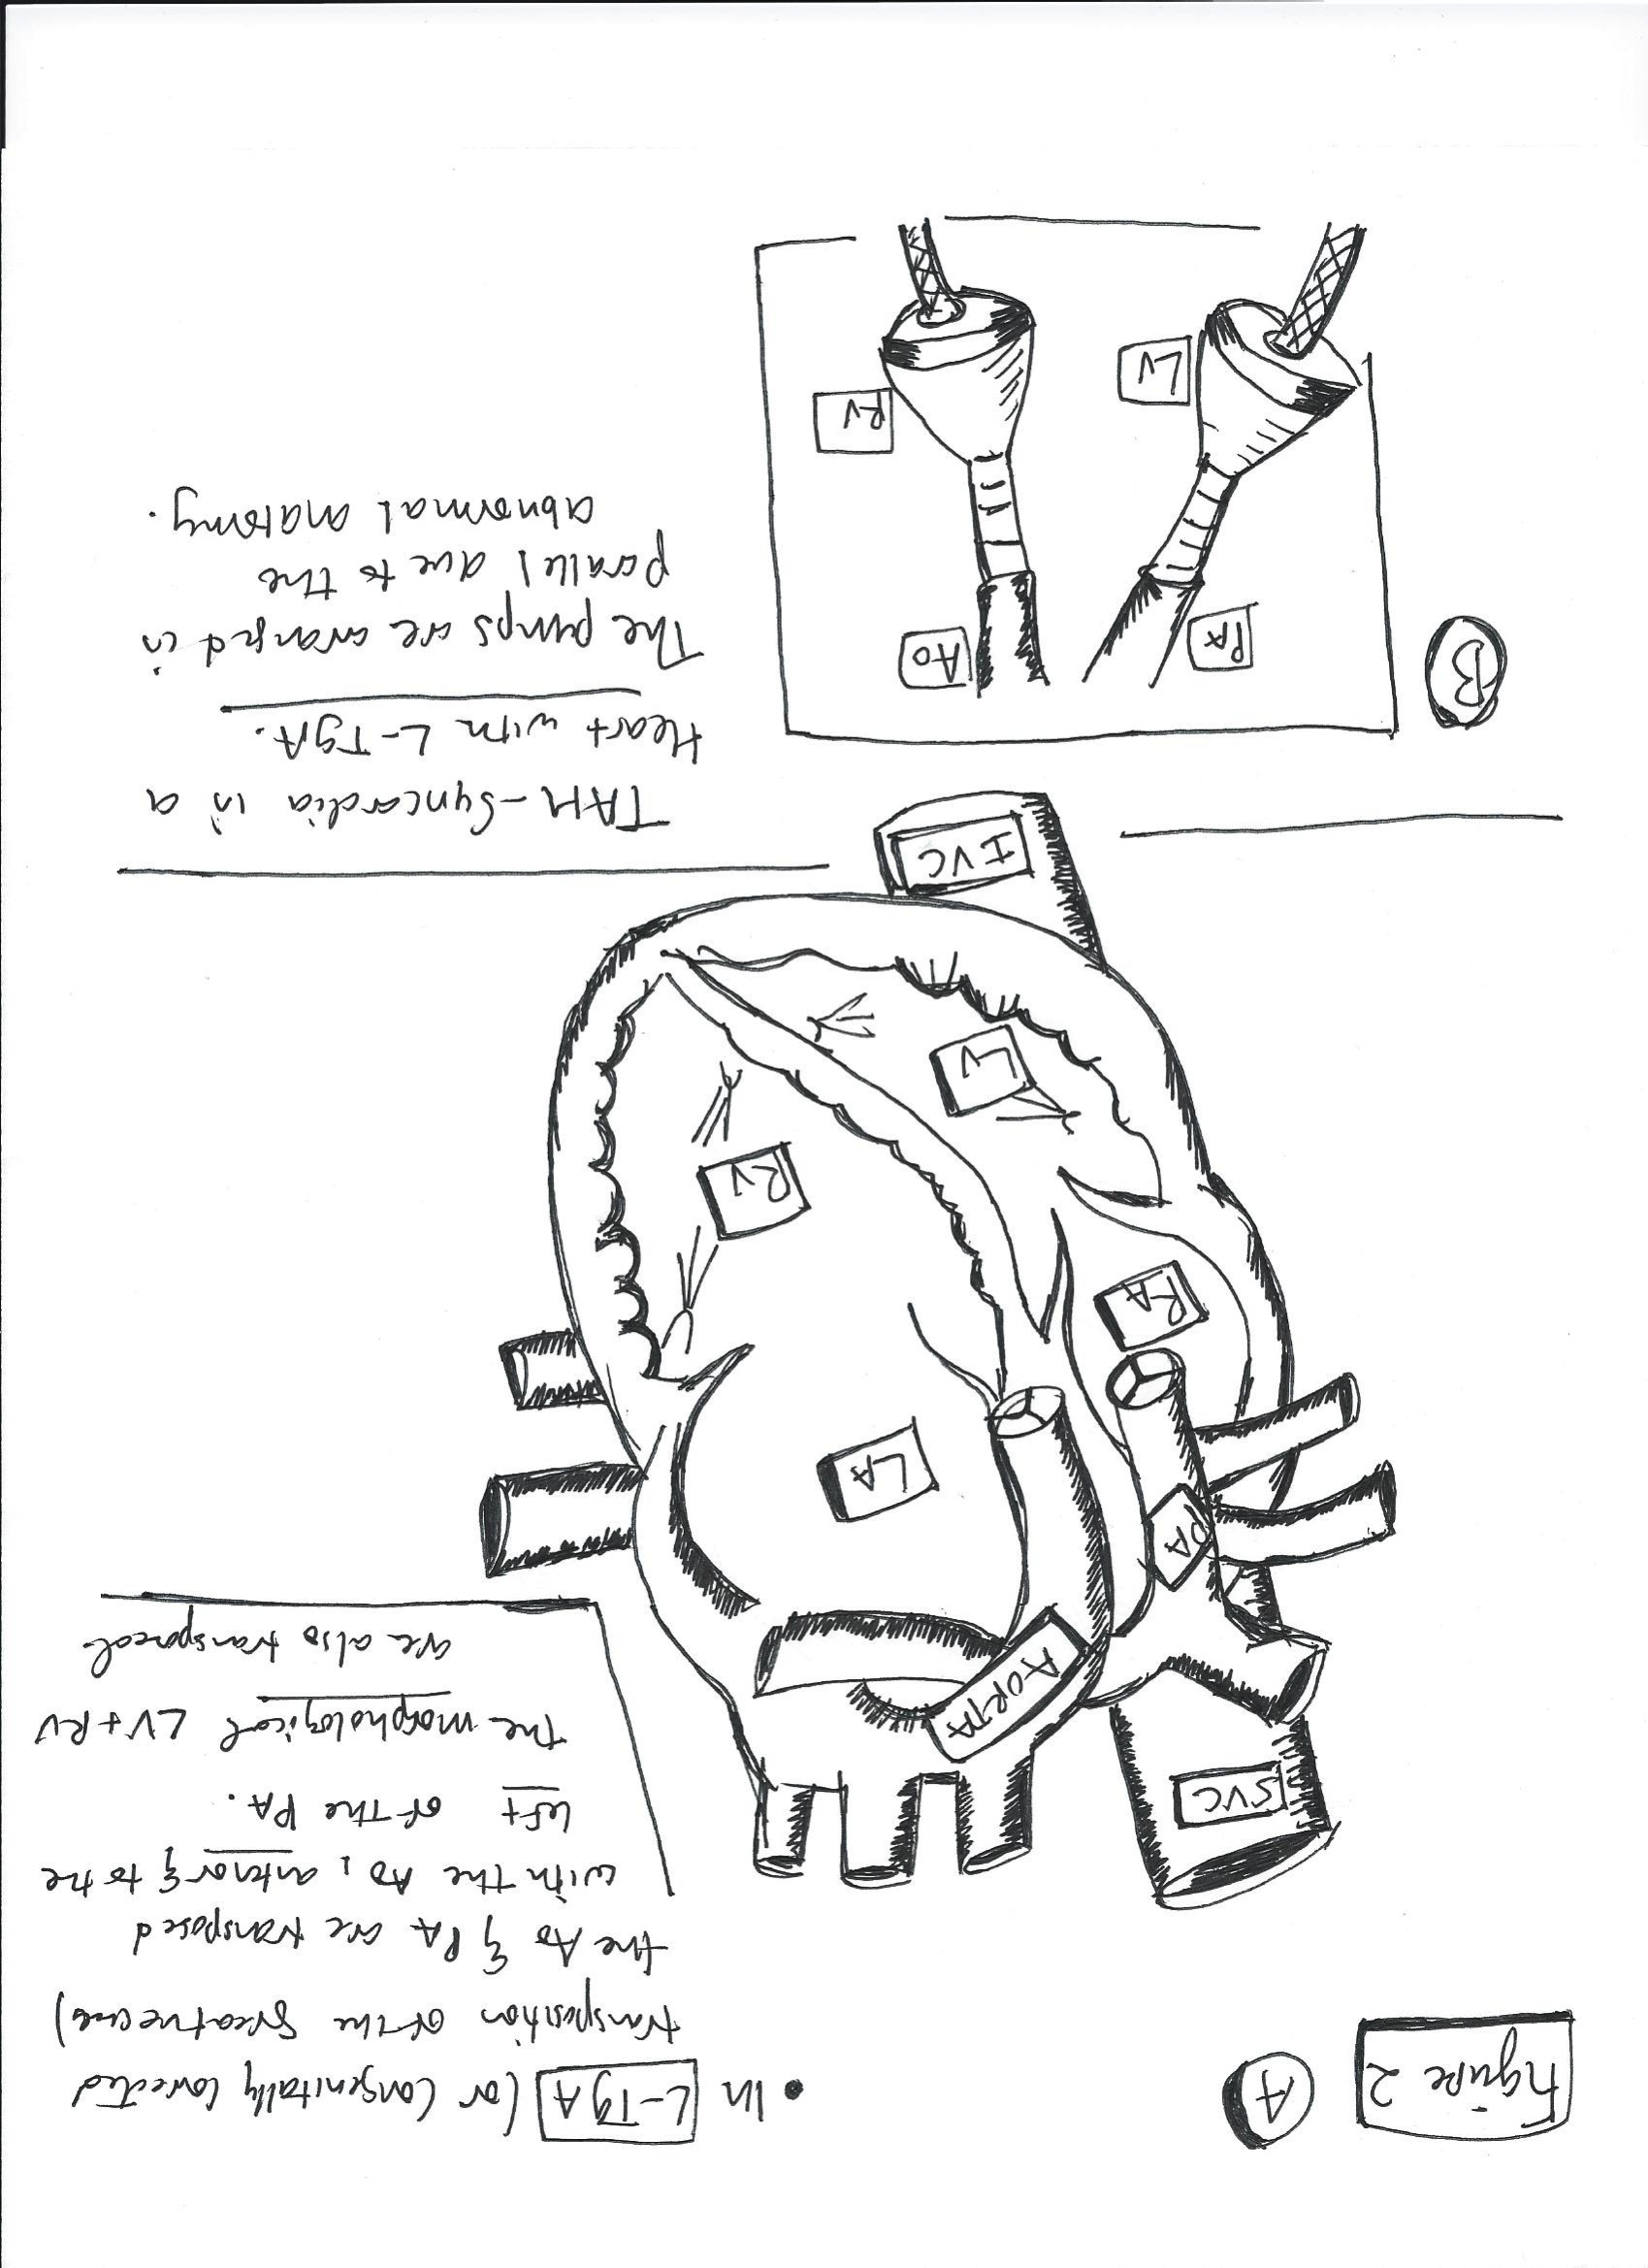 Figure 2
A
• In L-TgA (or Congenitally Corrected
transposition of the great vessels)
the Ao & PA are transposed
with the Ao, anterior & to the
left of the PA.
the morphological LV + RV
are also transposed
SVC
AORTA
PA
LA
RA
RV
LV
IVC
TAH-Syncardia in a
Heart with L-TgA.
The pumps are arranged in
parallel due to the
abnormal anatomy.
B
PA
Ao
RV
LV